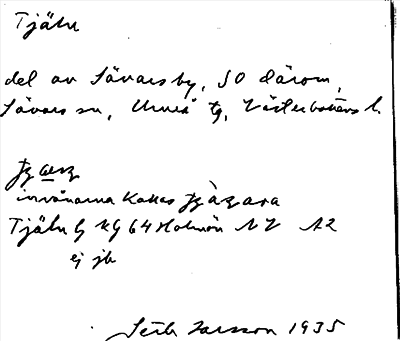 Tjäln
del av Sävars by, SO därom,
Sävars sn, Umeå tg, Västerbottens l.
invånarna kallas
Tjäln G KG 64 Holmön NV A2
ej jb
Seth Larsson 1935